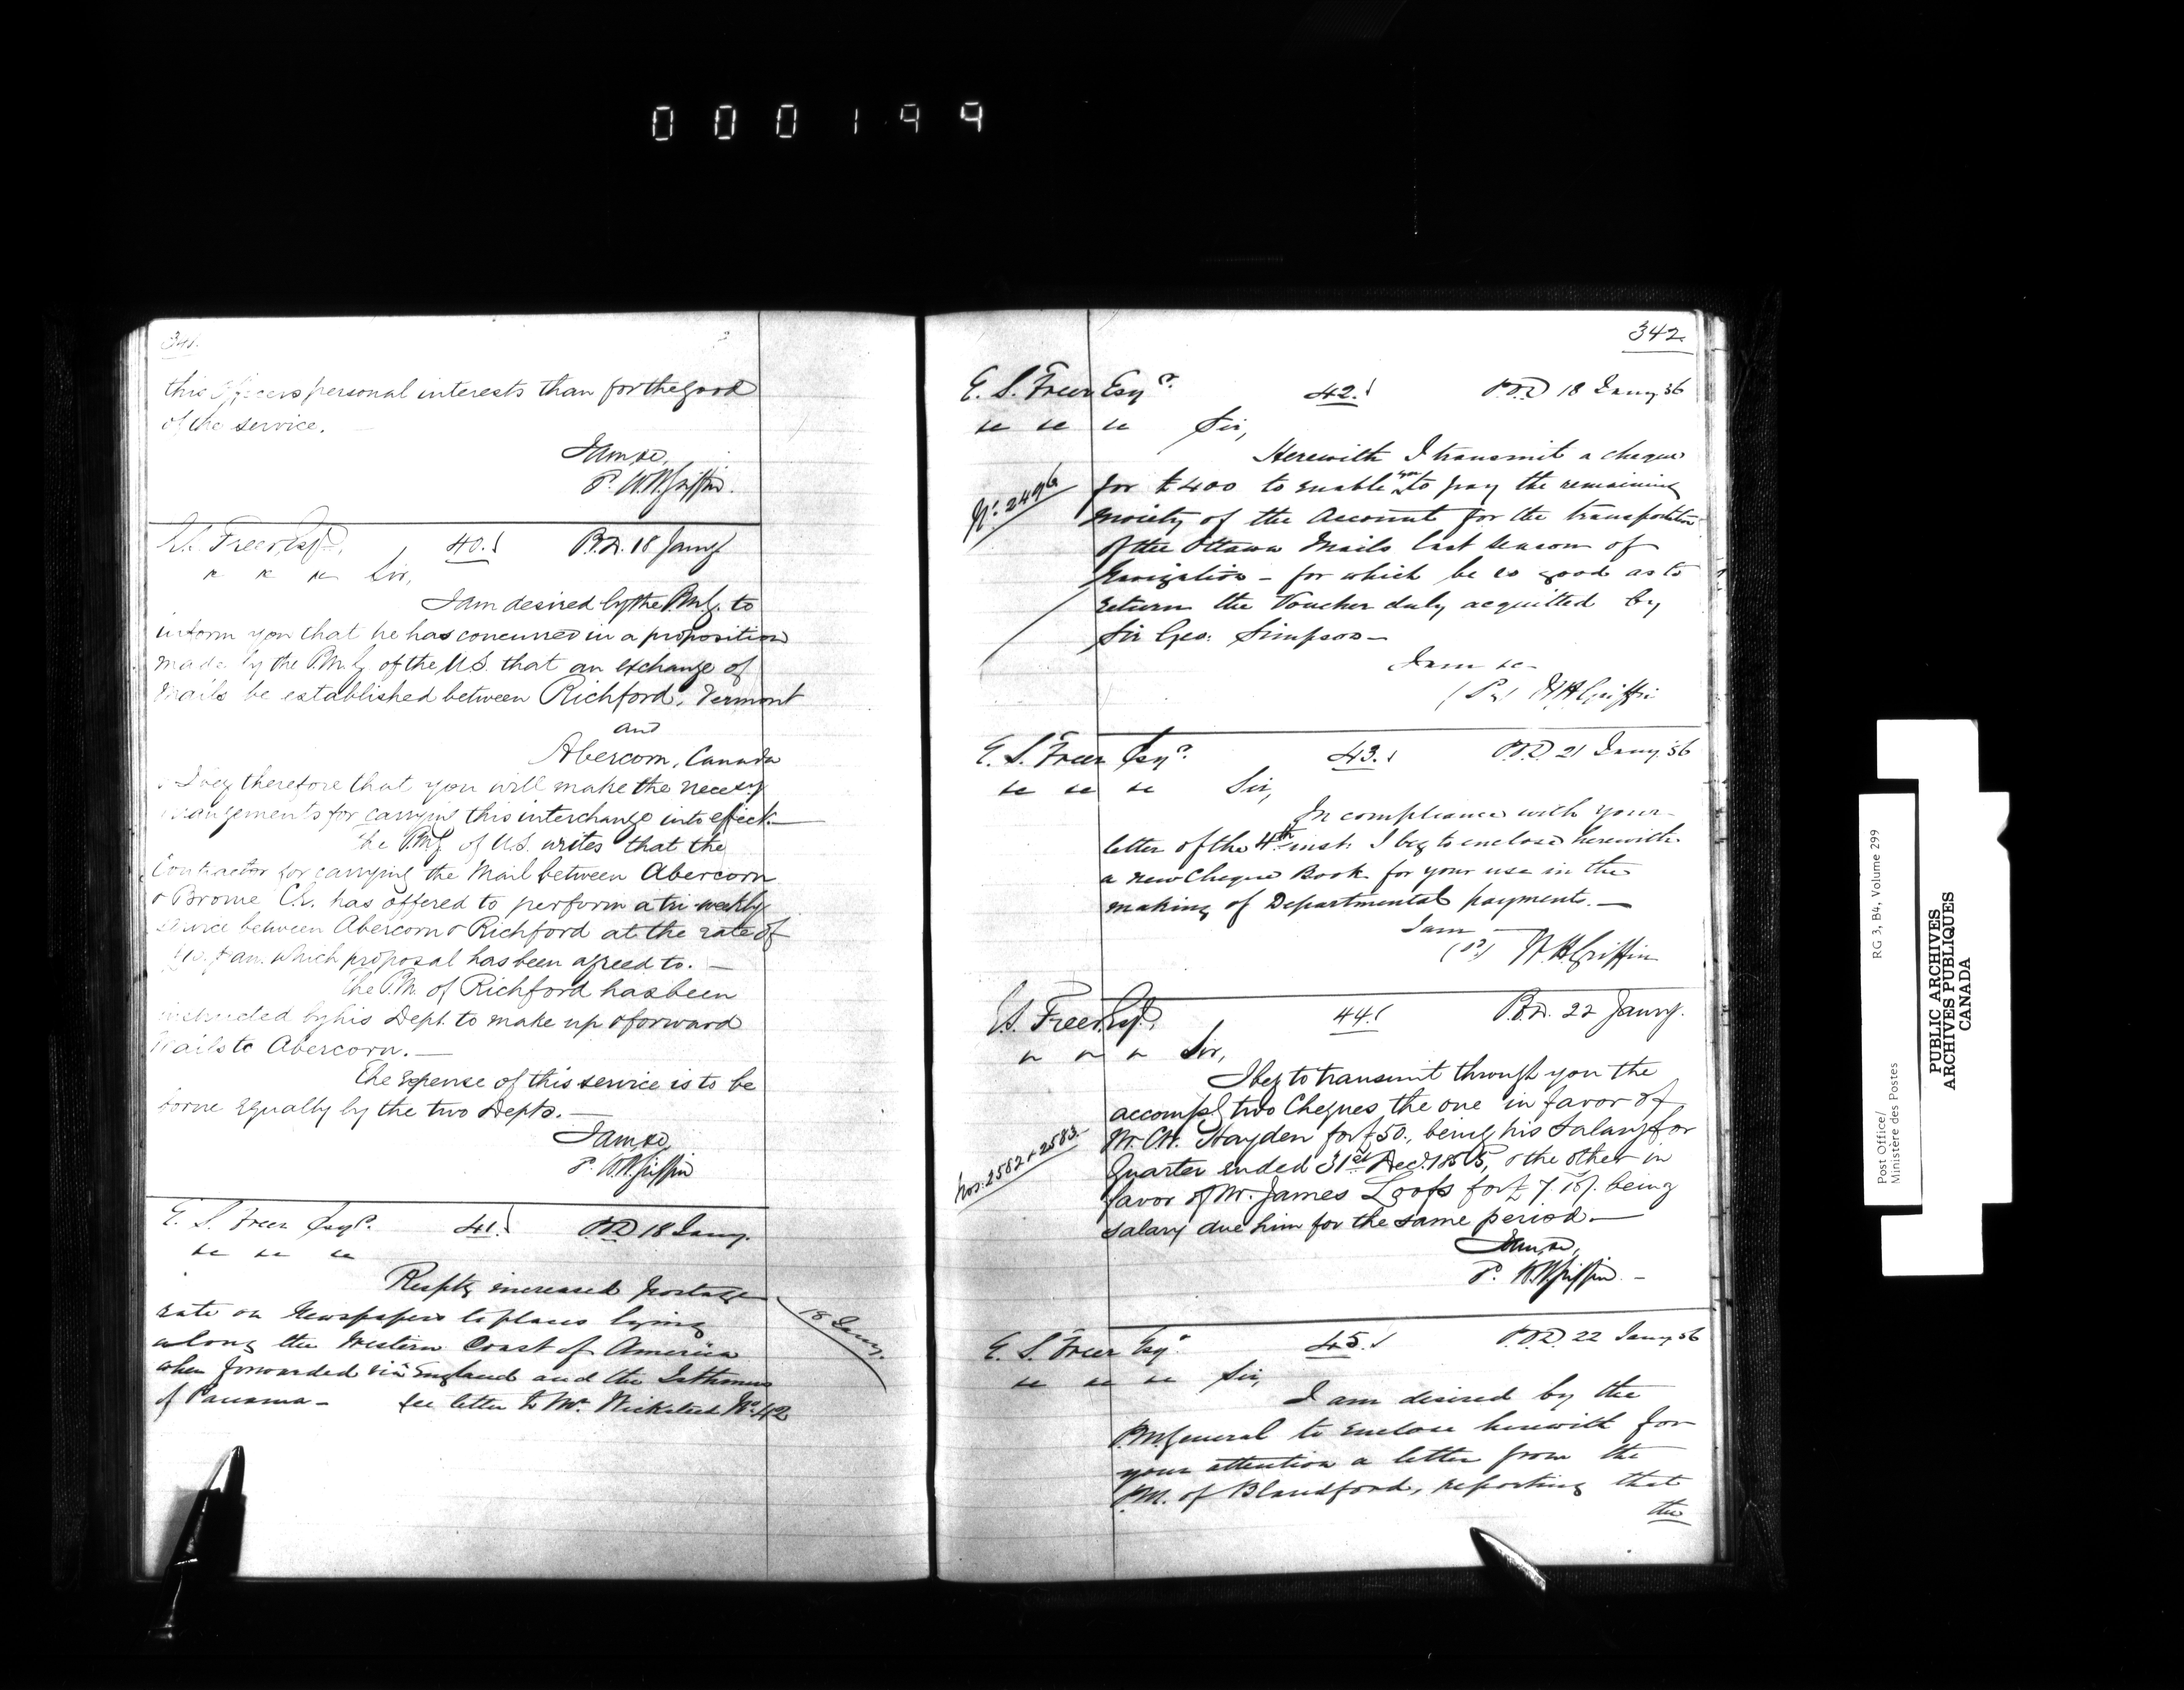 000199
341.
this Officers personal interests than for the good
of the service.
I am &c,
W.H. Griffin.
E.S. Freer Esqr. 40. P.O.D. 18 Jany
&c &c &c Sir,
I am desired by the P.M.G. to
inform you that he has concurred in a proposition
made by the P.M.G. of the U.S. that an exchange of
Mails be established between Richford, Vermont
and
Abercorn, Canada
I beg therefore that you will make the necessy
arrangements for carrying this interchange into effect.—
The P.M.G. of U.S. writes that the
Contractor for carrying the Mail between Abercorn
& Brome C.E. has offered to perform a tri-weekly
service between Abercorn & Richford at the rate of
an. which proposal has been agreed to.—
The P.M. of Richford has been
instructed by his Dept. to make up & forward
Mails to Abercorn.—
The expense of this service is to be
borne equally by the two Depts.—
I am &c,
W.H. Griffin
E. S. Freer Esqr. 41. P.O.D 18 Jany.
&c &c &c
Respg increased postage
rate on Newspapers to places lying
along the Western Coast of America
when forwarded via England and the Isthmus
of Panama – See letter to Mr. Wicksteed No. 42
18 Jany.
342
E. S. Freer Esqr. 42. P.O.D 18 Jany 56
&c &c &c Sir,
Herewith I transmit a cheque
for £400 to enable you to pay the remaining
moiety of the Account for the transportation
of the Ottawa Mails last season of
Navigation – for which be so good as to
return the Voucher duly acquitted by
Sir Geo: Simpson –
No. 2496
I am &c –
W H Griffin
E. S. Freer Esqr. 43. P.O.D 21 Jany. 56
&c &c &c Sir,
In compliance with your
letter of the 4th inst. I beg to enclose herewith
a new Cheque Book for your use in the
making of Departmental payments.—
I am —
W.H. Griffin
E.S. Freer Esqr. 44. P.O.D. 22 Jany.
Sir,
I beg to transmit through you the
accompg two Cheques the one in favor of
Mr. C.H. Hayden for £50., being his Salary for
Quarter ended 31st Decr. 1855, & the other in
favor of Mr. James for £7. being
salary due him for the same period.—
Nos. 2582 & 2583.
I am &c,
W.H. Griffin.—
E. S. Freer Esqr. 45. P.O.D. 22 Jany 56
&c &c &c Sir,
I am desired by the
P.M. General to enclose herewith for
your attention a letter from the
P.M. of Blandford, reporting that
the
Post Office/ RG 3, B4, Volume 299
Ministère des Postes
PUBLIC ARCHIVES
ARCHIVES PUBLIQUES
CANADA